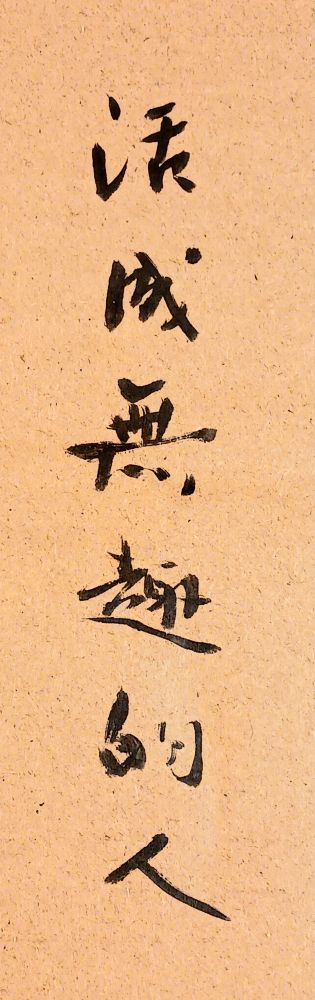 活成無趣的人